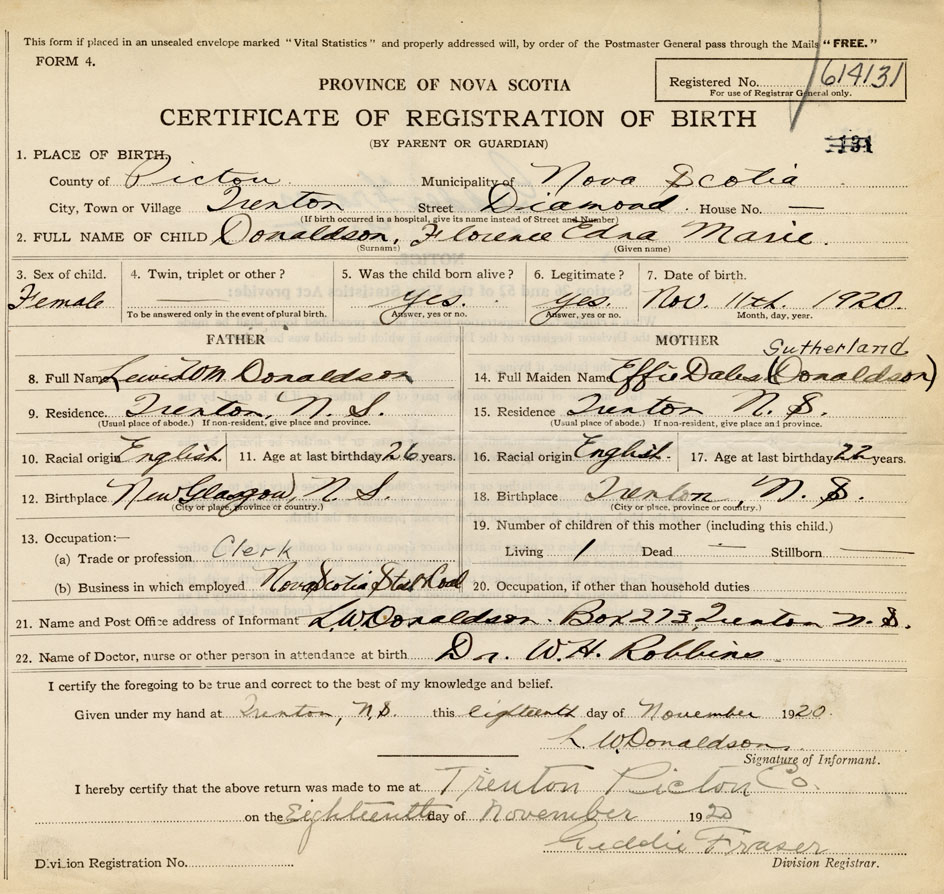 This form if placed in an unsealed envelope marked "Vital Statistics" and properly addressed will, by order of the Postmaster General pass through the Mails "FREE."
FORM 4.
PROVINCE OF NOVA SCOTIA
Registered No. 614131
For use of Registrar General only.
CERTIFICATE OF REGISTRATION OF BIRTH
(BY PARENT OR GUARDIAN)
131
1. PLACE OF BIRTH.
County of Pictou Municipality of Nova Scotia
City, Town or Village Trenton Street Diamond. House No. —
(If birth occurred in a hospital, give its name instead of Street and Number)
2. FULL NAME OF CHILD Donaldson, Florence Edna Marie.
(Surname) (Given name)
3. Sex of child. 4. Twin, triplet or other? 5. Was the child born alive? 6. Legitimate? 7. Date of birth.
Female — Yes. Yes. Nov. 11th. 1920.
To be answered only in the event of plural birth. Answer, yes or no. Answer, yes or no. Month, day, year.
FATHER MOTHER
Sutherland
8. Full Name Lewis Wm Donaldson 14. Full Maiden Name Effie Dales (Donaldson)
9. Residence. Trenton, N. S. 15. Residence Trenton N. S.
(Usual place of abode.) If non-resident, give place and province. (Usual place of abode.) If non-resident, give place and province.
10. Racial origin English 11. Age at last birthday 26 years. 16. Racial origin English. 17. Age at last birthday 22 years.
12. Birthplace New Glasgow, N. S. 18. Birthplace Trenton, N. S.
(City or place, province or country.) (City or place, province or country.)
13. Occupation:— 19. Number of children of this mother (including this child.)
(a) Trade or profession Clerk Living 1 Dead — Stillborn —
(b) Business in which employed Nova Scotia Steel & Coal 20. Occupation, if other than household duties
21. Name and Post Office address of Informant L.W. Donaldson. Box 273, Trenton N. S.
22. Name of Doctor, nurse or other person in attendance at birth Dr. W. H. Robbins
I certify the foregoing to be true and correct to the best of my knowledge and belief.
Given under my hand at Trenton, N.S. this eighteenth day of November 1920.
L. W. Donaldson.
Signature of Informant.
I hereby certify that the above return was made to me at Trenton Pictou Co.
on the Eighteenth day of November 1920
Geddie Fraser
Division Registrar.
Division Registration No.